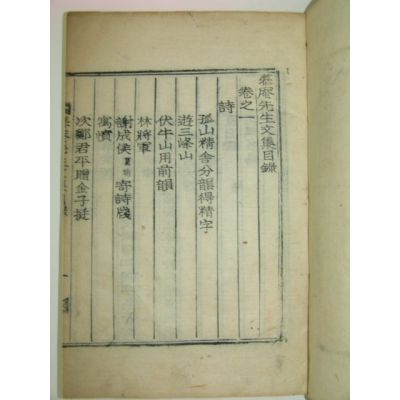 庵先生文集目錄
卷之一
詩
孤山精舍分韻得精字
遊三峰山
伏牛山用前韻
林將軍
謝成侯寄詩牋
寓
次鄭君平贈金子挺